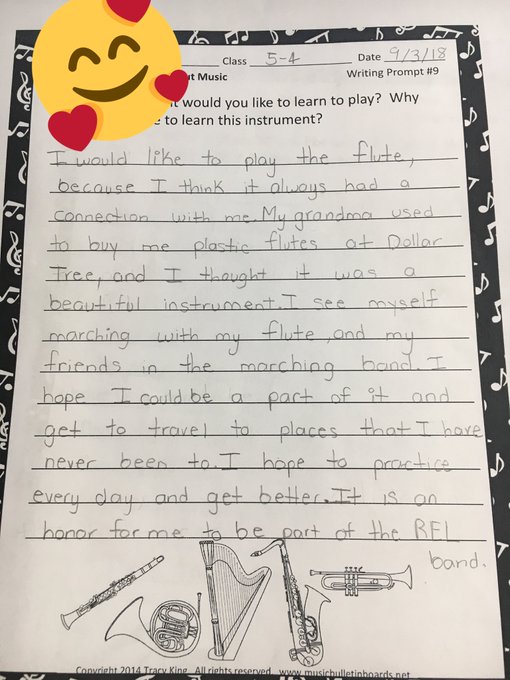 Class 5-4 Date 9/3/18
ut Music Writing Prompt #9
t would you like to learn to play? Why
e to learn this instrument?
I would like to play the flute,
because I think it always had a
connection with me. My grandma used
to buy me plastic flutes at Dollar
Tree, and I thought it was a
beautiful instrument. I see myself
marching with my flute, and my
friends in the marching band. I
hope I could be a part of it and
get to travel to places that I have
never been to. I hope to practice
every day and get better. It is an
honor for me to be part of the REL
band.
Copyright 2014 Tracy King All rights reserved www.musicbulletinboards.net